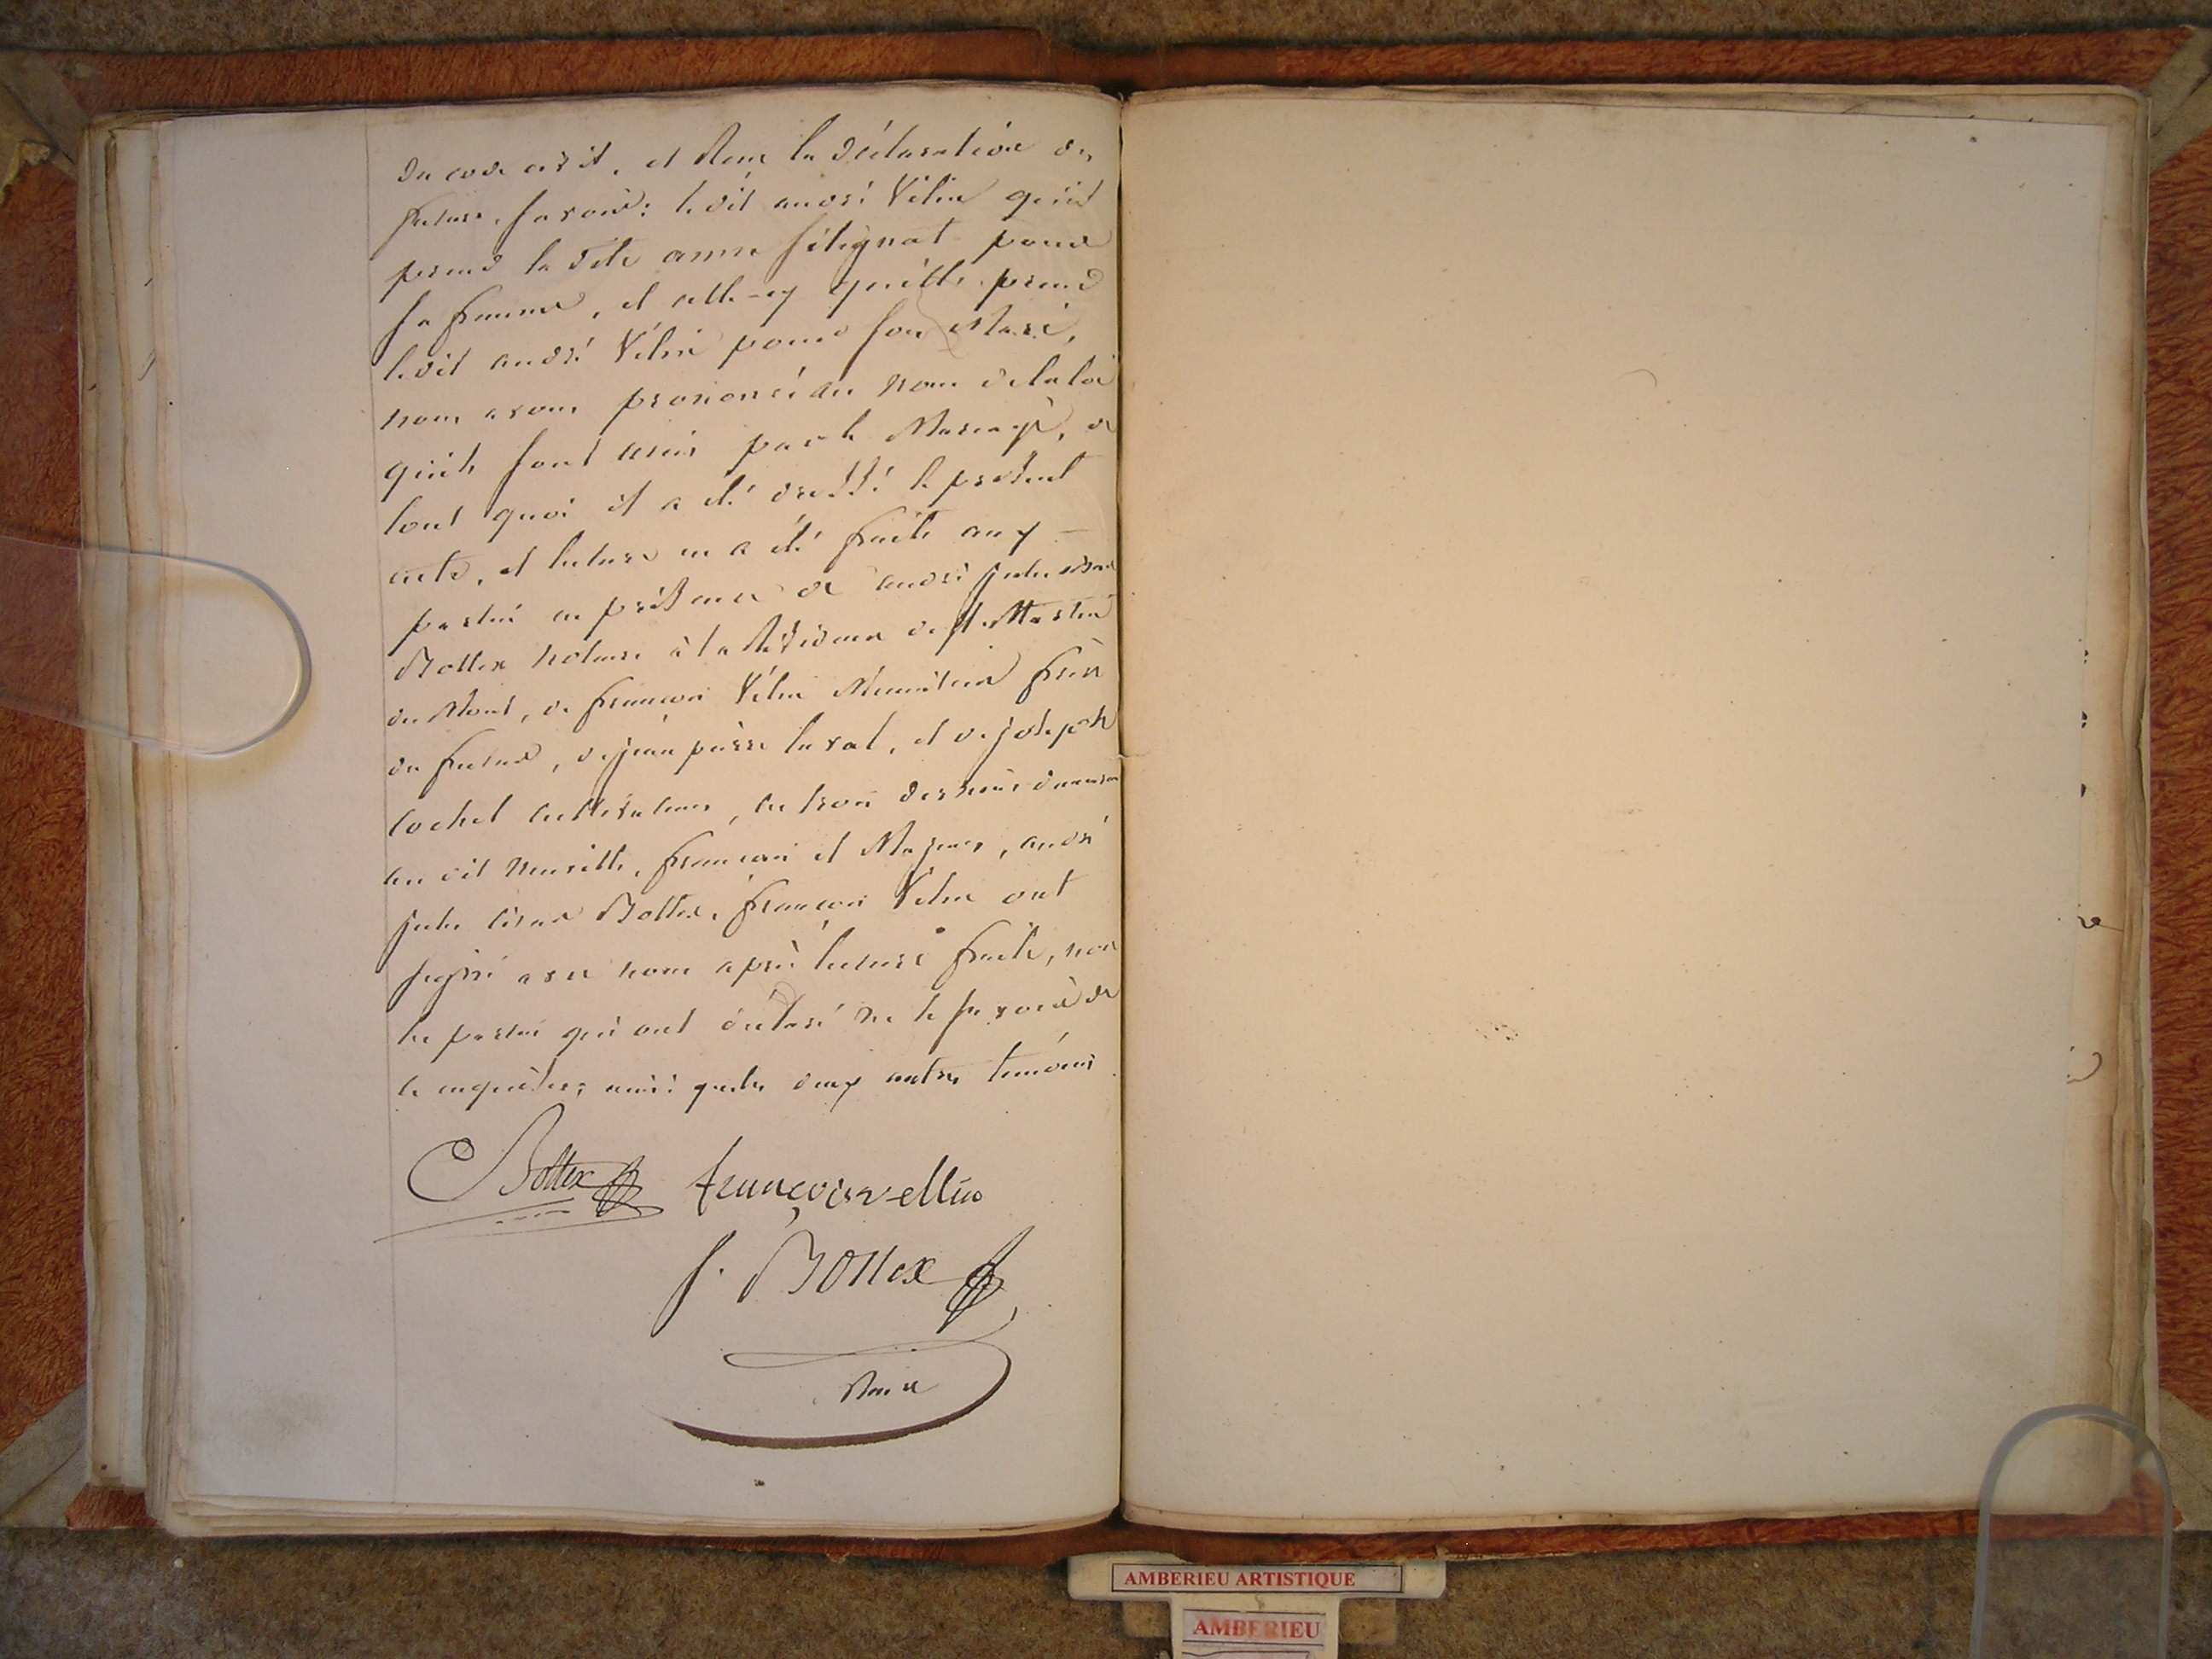 du code civil, et reçu la déclaration des
futurs, savoir: ledit andré Vélin qu'il
prend la dite anne fétignat pour
sa femme, et celle-cy qu'elle prend
ledit andré Vélin pour son Mari,
nous avons prononcé au nom de la loi
qu'ils sont unis par le Mariage, de
tout quoi il a été dressé le présent
acte, et lecture en a été faite aux
parties en présence de andré jules
Bottex notaire à la Résidence de St Martin
du Mont, de françois Vélin frère
du futur, de jean pierre laval, et de joseph
cochet cultivateurs, les trois derniers
au dit Neuville, français et Majeurs, andré
jules Bottex, françois Vélin ont
signé avec nous après lecture faite, non
les parties qui ont déclaré ne le savoir de
ce enquises, ainsi que les deux autres témoins
Bottex françois vellin
f. Bottex
Maire
AMBERIEU ARTISTIQUE
AMBERIEU